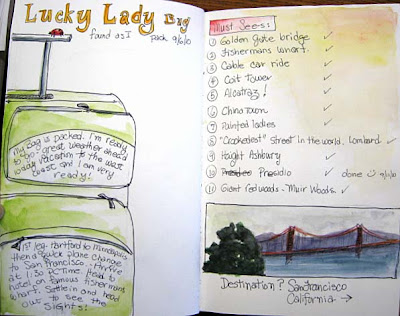 Lucky Lady Bug
found as I pack 9/6/10
My Bag is packed. I'm ready
to go - great weather ahead
today. Vacation to the west
coast and I am very
ready!
1st leg. Hartford to Minneapolis
then a quick plane change
to San Francisco - Arrive
at 1:30 PC Time. Head to
hotel on famous fisherman's
wharf. Settle in and head
out to see the
Sights!
Must See's:
1 Golden Gate bridge ✓
2 Fishermans Wharf. ✓
3 Cable car ride ✓
4 Coit Tower ✓
5 Alcatraz! ✓
6 China Town ✓
7 Painted ladies ✓
8 "Crookediest" Street in the world. Lombard ✓
9 Haight Ashbury ✓
10 Presidio ✓ done ☺ 9/10
11 Giant redwoods - Muir Woods ✓
Destination? San Francisco
California →